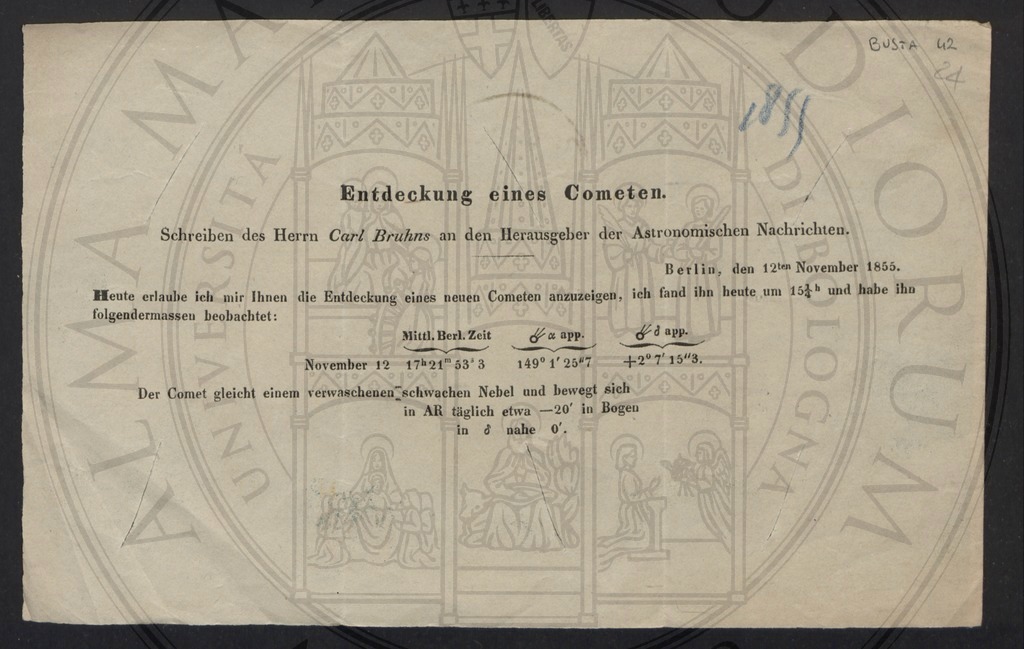 BUSTA 42
24
1855
Entdeckung eines Cometen.
Schreiben des Herrn Carl Bruhns an den Herausgeber der Astronomischen Nachrichten.
Berlin, den 12ten November 1855.
Heute erlaube ich mir Ihnen die Entdeckung eines neuen Cometen anzuzeigen, ich fand ihn heute um 15¾ʰ und habe ihn
folgendermassen beobachtet:
Mittl. Berl. Zeit ☄ α app. ☄ δ app.
November 12 17ʰ 21ᵐ 53ˢ 3 149° 1' 25"7 +2° 7' 15"3.
Der Comet gleicht einem verwaschenen schwachen Nebel und bewegt sich
in AR täglich etwa —20' in Bogen
in δ nahe 0'.
ALMA MATER STUDIORUM
UNIVERSITA DI BOLOGNA
LIBERTAS